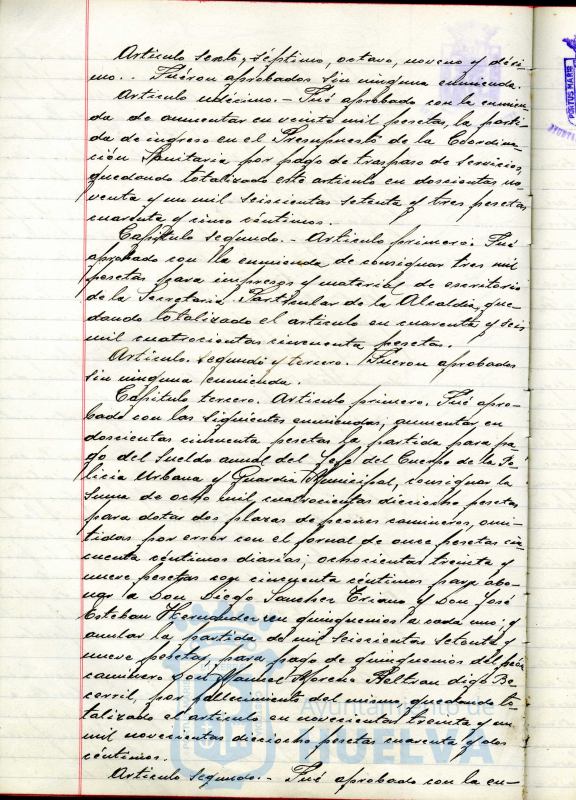 Articulo sexto, séptimo, octavo, noveno y déci-
mo. - Fuéron aprobados sin ninguna enmienda.
Articulo undécimo. - Fué aprobado con la enmien-
da de aumentar en veinte mil pesetas, la parti-
da de ingreso en el Presupuesto de la Coordina-
ción Sanitaria por pago de traspaso de servicios,
quedando totalizado este articulo en doscientas no
venta y un mil seiscientas setenta y tres pesetas
cuarenta y cinco céntimos.
Capitulo segundo. - Articulo primero. Fué
aprobado con la enmienda de consignar tres mil
pesetas para impresos y material de escritorio
de la Secretaria Particular de la Alcaldia, que-
dando totalizado el articulo en cuarenta y seis
mil cuatrocientas cincuenta pesetas.
Articulo segundo y tercero. Fueron aprobados
sin ninguna enmienda.
Capitulo tercero. Articulo primero. Fué apro-
bado con las siguientes enmiendas, aumentar en
doscientas cincuenta pesetas la partida para pa
go del sueldo anual del Jefe del Cuerpo de la Po-
licia Urbana y Guardia Municipal, consignar la
suma de ocho mil cuatrocientas dieciocho pesetas
para dotar dos plazas de peones camineros, omi-
tidas por error con el jornal de once pesetas cin
cuenta céntimos diarias, ochocientas treinta y
nueve pesetas con cincuenta céntimos para abo-
nar a Don Diego Sanchez Triano y Don José
Esteban Hernandez en quinquenios a cada uno; y
anular la partida de mil seiscientas setenta y
nueve pesetas, para pago de quinquenios del peón
caminero Don Manuel Moreno Beltran digo Be
cerril, por fallecimiento del mismo, quedando to
talizado el articulo en novecientas treinta y un
mil novecientas dieciocho pesetas cuarenta y dos
céntimos.
Articulo segundo. - Fué aprobado con la en-
Ayuntamiento de
HUELVA
PORTUS MARIS